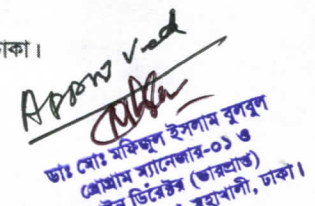 ঢাকা।
Approved
ডাঃ মোঃ মফিজুল ইসলাম বুলবুল
প্রোগ্রাম ম্যানেজার-০১ ও
ডিরেক্টর (ভারপ্রাপ্ত)
মহাখালী, ঢাকা।